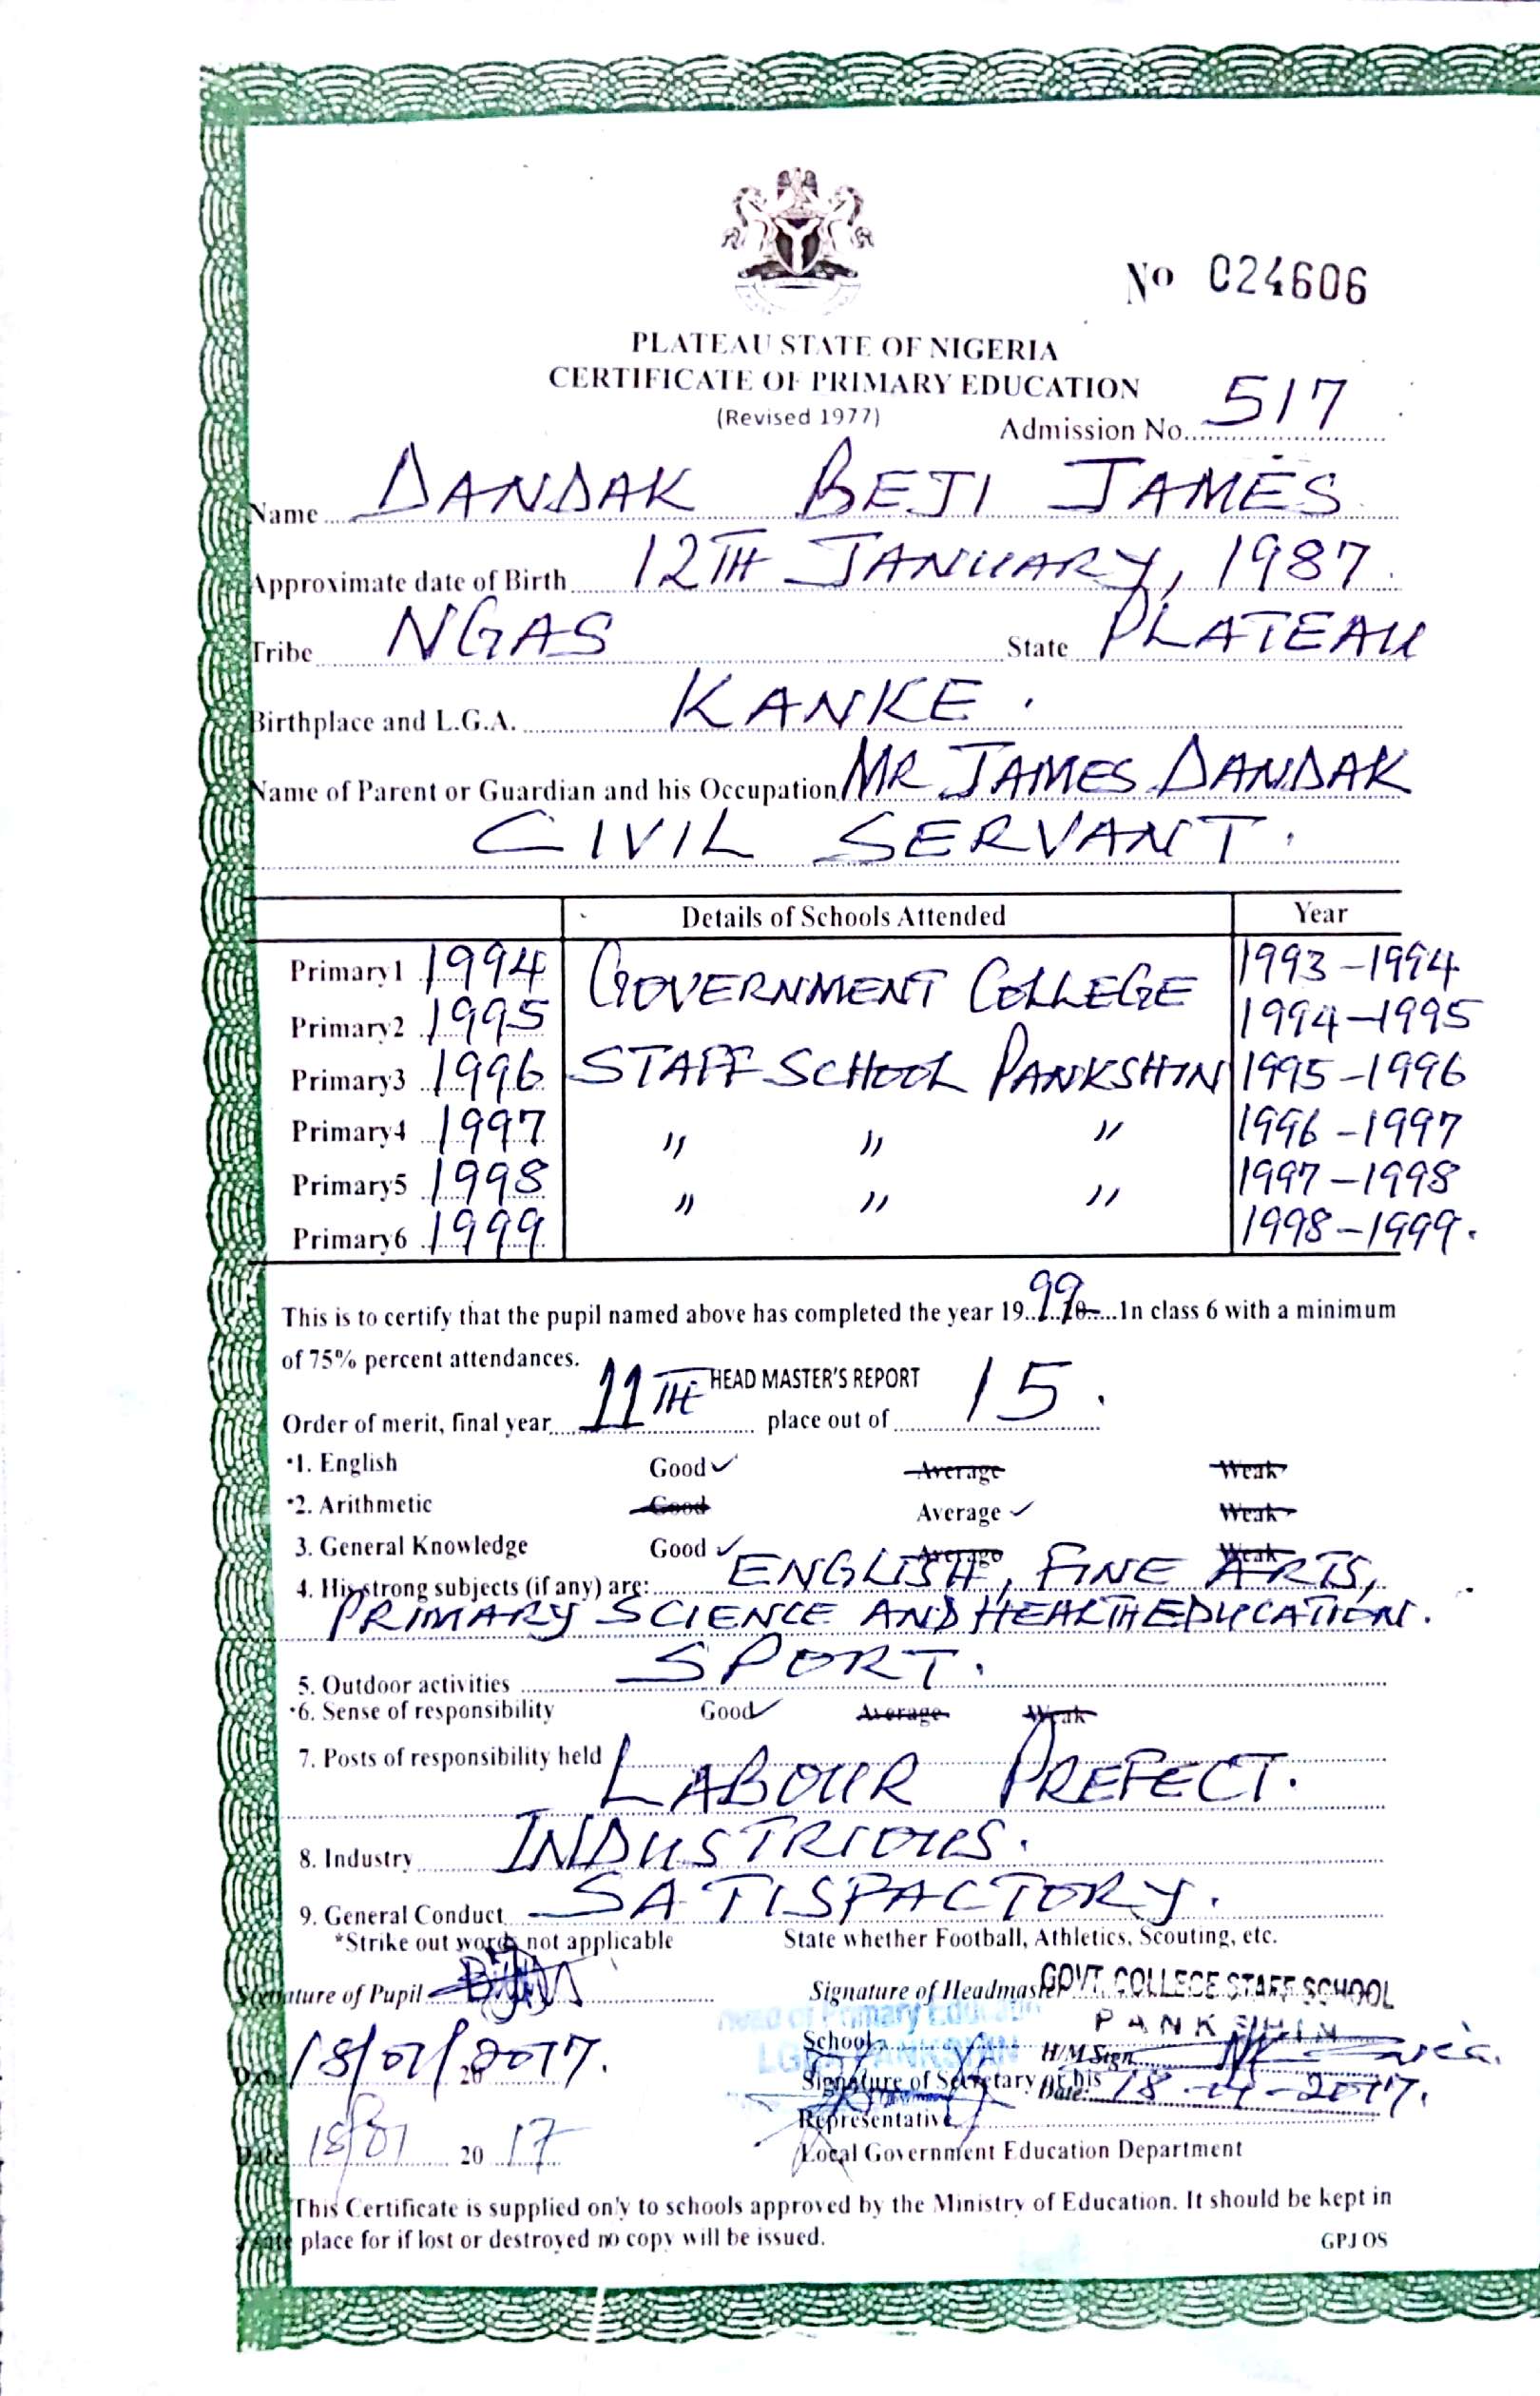 No 024606
PLATEAU STATE OF NIGERIA
CERTIFICATE OF PRIMARY EDUCATION
(Revised 1977)
Admission No. 517
Name DANDAK BEJI JAMES
Approximate date of Birth 12TH JANUARY, 1987.
Tribe NGAS State PLATEAU
Birthplace and L.G.A. KANKE.
Name of Parent or Guardian and his Occupation MR JAMES DANDAK
CIVIL SERVANT.
Details of Schools Attended Year
Primary1 1994 GOVERNMENT COLLEGE 1993-1994
Primary2 1995 1994-1995
Primary3 1996 STAFF SCHOOL PANKSHIN 1995-1996
Primary4 1997 " " " 1996-1997
Primary5 1998 " " " 1997-1998
Primary6 1999 1998-1999.
This is to certify that the pupil named above has completed the year 19 99 In class 6 with a minimum
of 75% percent attendances.
HEAD MASTER'S REPORT
Order of merit, final year 11TH place out of 15.
*1. English Good ✓ Average Weak
*2. Arithmetic Good Average ✓ Weak
3. General Knowledge Good ✓ Average Weak
4. His strong subjects (if any) are: ENGLISH, FINE ARTS,
PRIMARY SCIENCE AND HEALTH EDUCATION.
5. Outdoor activities SPORT.
*6. Sense of responsibility Good ✓ Average Weak
7. Posts of responsibility held LABOUR PREFECT.
8. Industry INDUSTRIOUS.
9. General Conduct SATISFACTORY.
*Strike out words not applicable State whether Football, Athletics, Scouting, etc.
Signature of Pupil Signature of Headmaster GOVT. COLLEGE STAFF SCHOOL
PANKSHIN
Head of Primary Education
School H/M Sign
LGEA PANKSHIN
Date 18/01/2017. 20
Signature of Secretary or his Date: 18-01-2017.
Representative
Date 18/01 20 17 Local Government Education Department
This Certificate is supplied only to schools approved by the Ministry of Education. It should be kept in
a safe place for if lost or destroyed no copy will be issued.
GPJOS